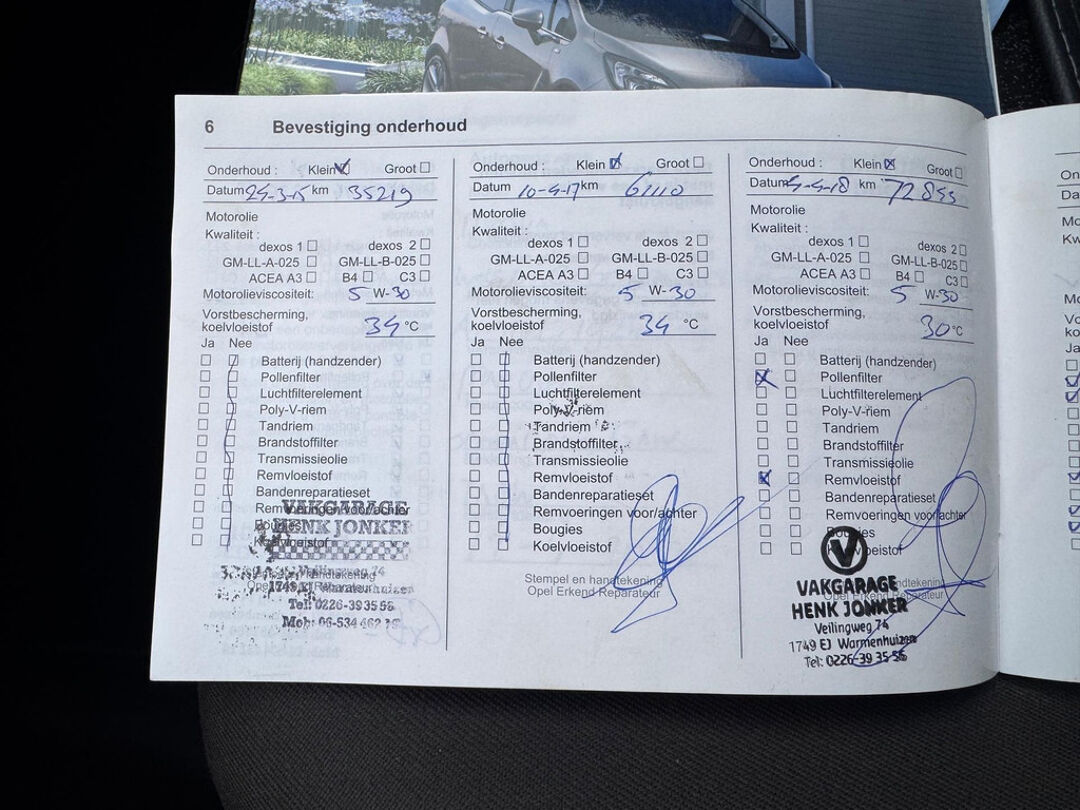 6 Bevestiging onderhoud
Onderhoud : Klein Groot
Datum 24-3-15 km 35219
Motorolie
Kwaliteit :
dexos 1 dexos 2
GM-LL-A-025 GM-LL-B-025
ACEA A3 B4 C3
Motorolieviscositeit: 5 W-30
Vorstbescherming,
koelvloeistof 34 °C
Ja Nee
Batterij (handzender)
Pollenfilter
Luchtfilterelement
Poly-V-riem
Tandriem
Brandstoffilter
Transmissieolie
Remvloeistof
Bandenreparatieset
Remvoeringen voor/achter
Bougies
Koelvloeistof
VAKGARAGE
HENK JONKER
Veilingweg 74
1749 EJ Warmenhuizen
Tel: 0226-39 35 56
Mob: 06-534 462
Onderhoud : Klein Groot
Datum 10-4-17 km 61110
Motorolie
Kwaliteit :
dexos 1 dexos 2
GM-LL-A-025 GM-LL-B-025
ACEA A3 B4 C3
Motorolieviscositeit: 5 W-30
Vorstbescherming,
koelvloeistof 34 °C
Ja Nee
Batterij (handzender)
Pollenfilter
Luchtfilterelement
Poly-V-riem
Tandriem
Brandstoffilter
Transmissieolie
Remvloeistof
Bandenreparatieset
Remvoeringen voor/achter
Bougies
Koelvloeistof
Stempel en handtekening
Opel Erkend Reparateur
Onderhoud : Klein Groot
Datum 4-18 km 72855
Motorolie
Kwaliteit :
dexos 1 dexos 2
GM-LL-A-025 GM-LL-B-025
ACEA A3 B4 C3
Motorolieviscositeit: 5 W-30
Vorstbescherming,
koelvloeistof 30 °C
Ja Nee
Batterij (handzender)
Pollenfilter
Luchtfilterelement
Poly-V-riem
Tandriem
Brandstoffilter
Transmissieolie
Remvloeistof
Bandenreparatieset
Remvoeringen voor/achter
Bougies
VAKGARAGE
HENK JONKER
Veilingweg 74
1749 EJ Warmenhuizen
Tel: 0226-39 35 56